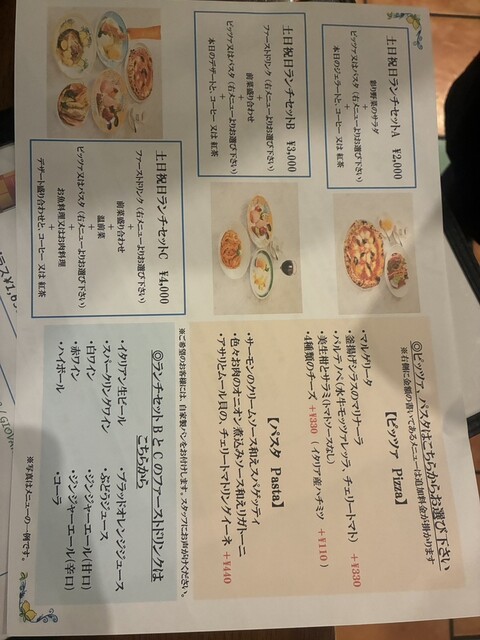 土日祝日ランチセットA ¥2,000
彩り野菜のサラダ
+
ピッツァ又はパスタ（右メニューよりお選び下さい）
+
本日のジェラートと、コーヒー 又は 紅茶
土日祝日ランチセットB ¥3,000
ファーストドリンク（右メニューよりお選び下さい）
+
前菜盛り合わせ
+
ピッツァ又はパスタ（右メニューよりお選び下さい）
+
本日のデザートと、コーヒー 又は 紅茶
土日祝日ランチセットC ¥4,000
ファーストドリンク（右メニューよりお選び下さい）
+
前菜盛り合わせ
+
温前菜
+
ピッツァ又はパスタ（右メニューよりお選び下さい）
+
お魚料理又はお肉料理
+
デザート盛り合わせと、コーヒー 又は 紅茶
◎ピッツァ、パスタはこちらからお選び下さい
※右側に金額の書いてあるメニューは追加料金が掛かります
【ピッツァ Pizza】
・マルゲリータ
・釜揚げシラスのマリナーラ
・パルテノペ（水牛モッツァレッラ、チェリートマト） +¥330
・美生柑とサラミ（トマトソースなし）
・4種類のチーズ +¥330（イタリア産ハチミツ +¥110）
【パスタ Pasta】
・サーモンのクリームソース和えスパゲッティ
・色々お肉のオニオン煮込みソース和えリガトーニ
・アサリとムール貝の、チェリートマトリングイーネ +¥440
※ご希望のお客様には、自家製パンをお付けします。スタッフにお声がけください。
◎ランチセットBとCのファーストドリンクは
こちらから
・イタリアン生ビール
・スパークリングワイン
・白ワイン
・赤ワイン
・ハイボール
・ブラッドオレンジジュース
・ぶどうジュース
・ジンジャーエール(甘口)
・ジンジャーエール(辛口)
・コーラ
※写真はメニューの一例です。